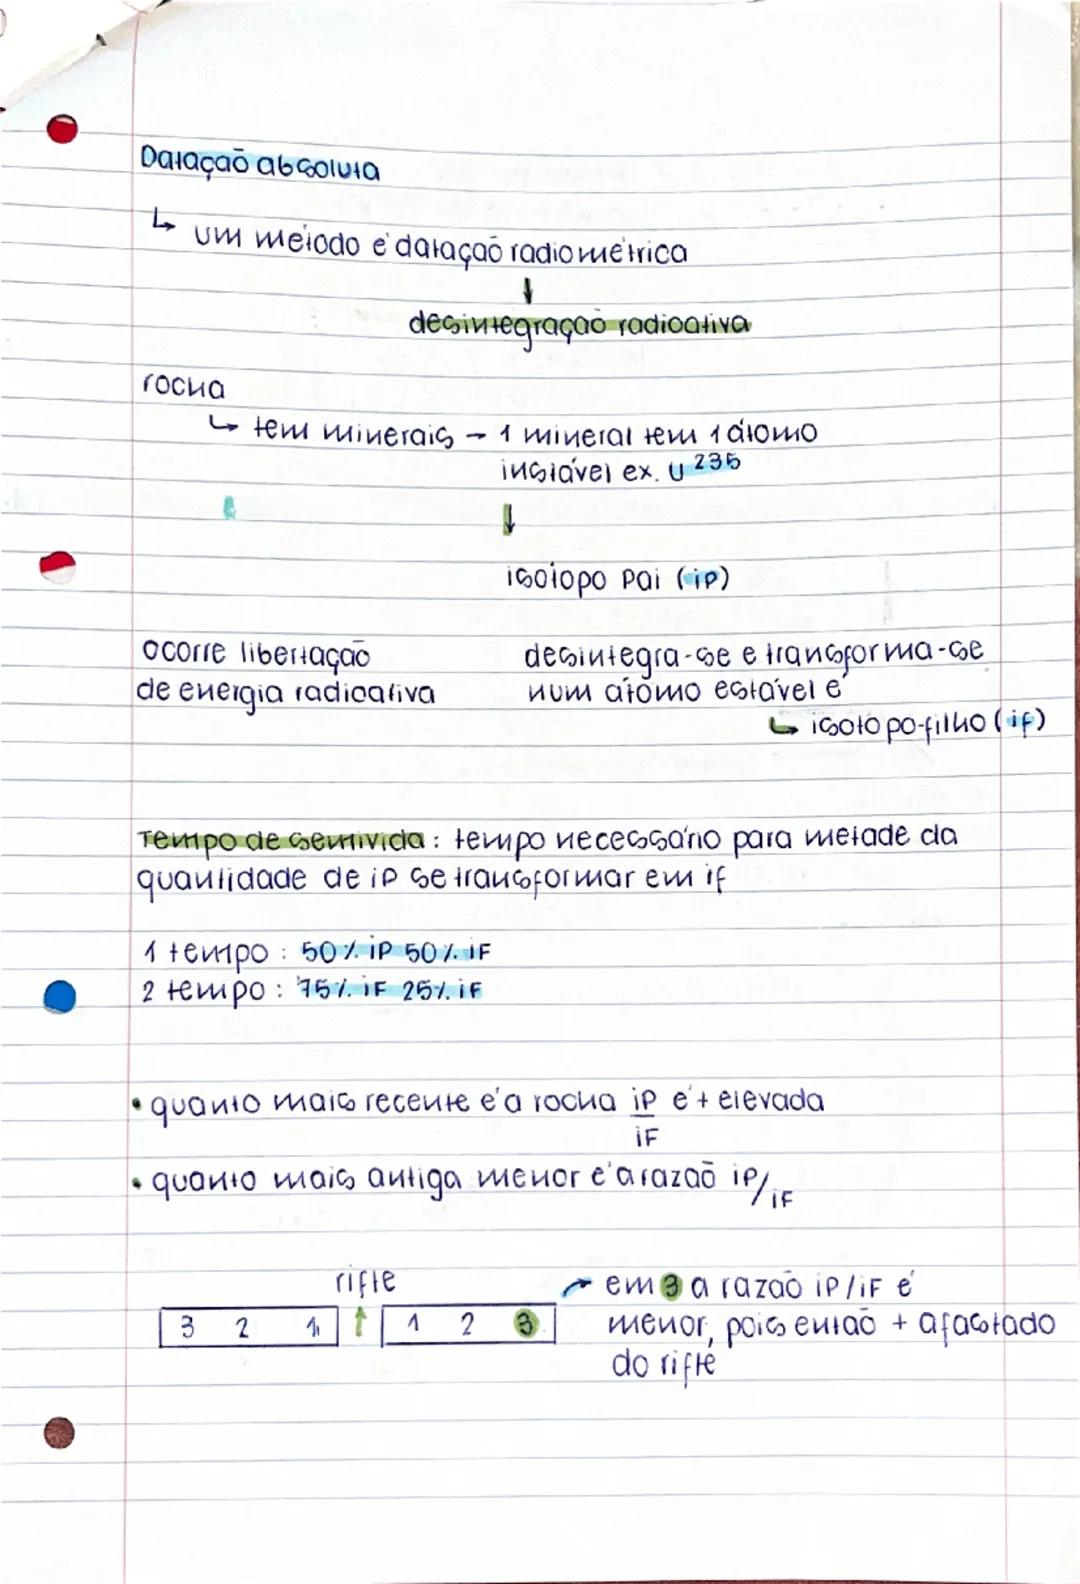 Datação absoluta
↳ um método é datação radiométrica
↓
desintegração radioativa
rocha
↳ tem minerais - 1 mineral tem 1 átomo
instável ex. U 235
↓
isótopo Pai (iP)
ocorre libertação
de energia radioativa
desintegra-se e transforma-se
num átomo estável é
↳ isótopo-filho (if)
Tempo de semivida: tempo necessário para metade da
quantidade de iP se transformar em if
1 tempo: 50% iP 50% iF
2 tempo: 75% iF 25% iF
• quanto mais recente é a rocha iP é + elevada
iF
• quanto mais antiga menor é a razão iP/iF
rifte
3 2 1 ↑ 1 2 3
→ em 3 a razão iP/iF é
menor, pois então + afastado
do rifte